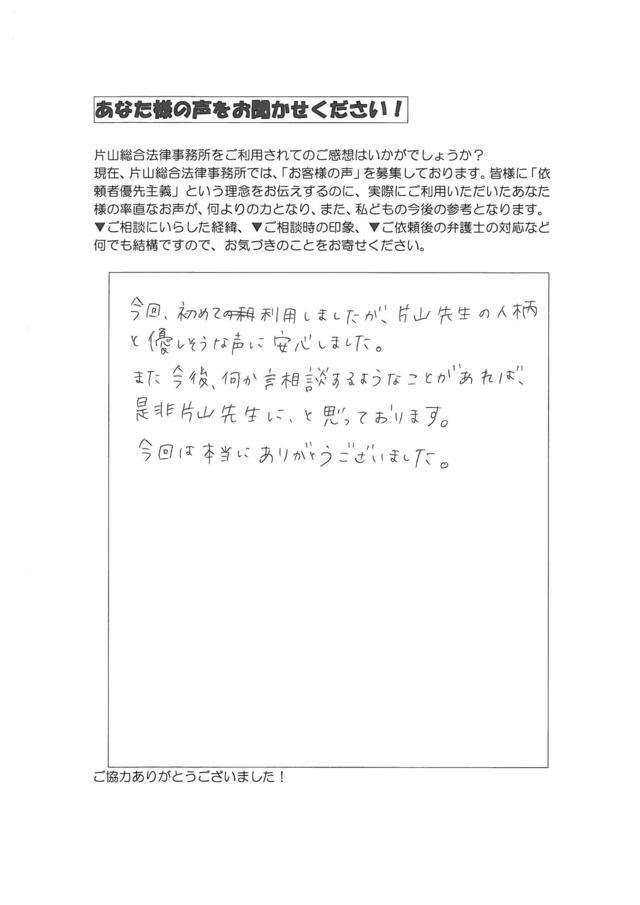 あなた様の声をお聞かせください！
片山総合法律事務所をご利用されてのご感想はいかがでしょうか？
現在、片山総合法律事務所では、「お客様の声」を募集しております。皆様に「依
頼者優先主義」という理念をお伝えするのに、実際にご利用いただいたあなた
様の率直なお声が、何よりの力となり、また、私どもの今後の参考となります。
▼ご相談にいらした経緯、▼ご相談時の印象、▼ご依頼後の弁護士の対応など
何でも結構ですので、お気づきのことをお寄せください。
今回、初めての利用しましたが、片山先生の人柄
と優しそうな声に安心しました。
また今後、何か相談するようなことがあれば、
是非片山先生に、と思っております。
今回は本当にありがとうございました。
ご協力ありがとうございました！